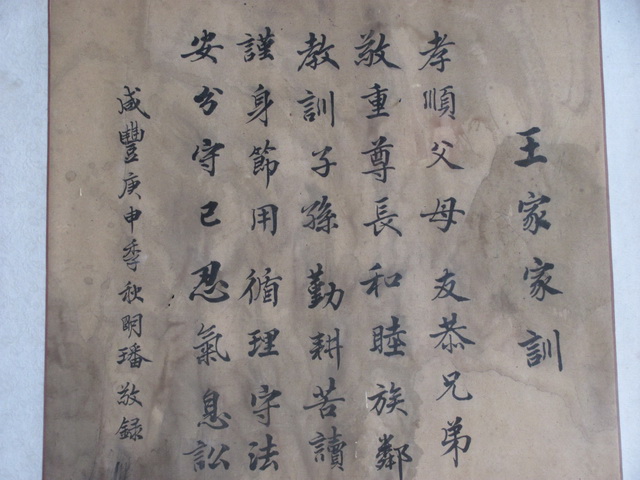 王家家訓
孝順父母友恭兄弟
敬重尊長和睦族鄰
教訓子孫勤耕苦讀
謹身節用循理守法
安分守己忍氣息訟
咸豐庚申季秋明璠敬錄